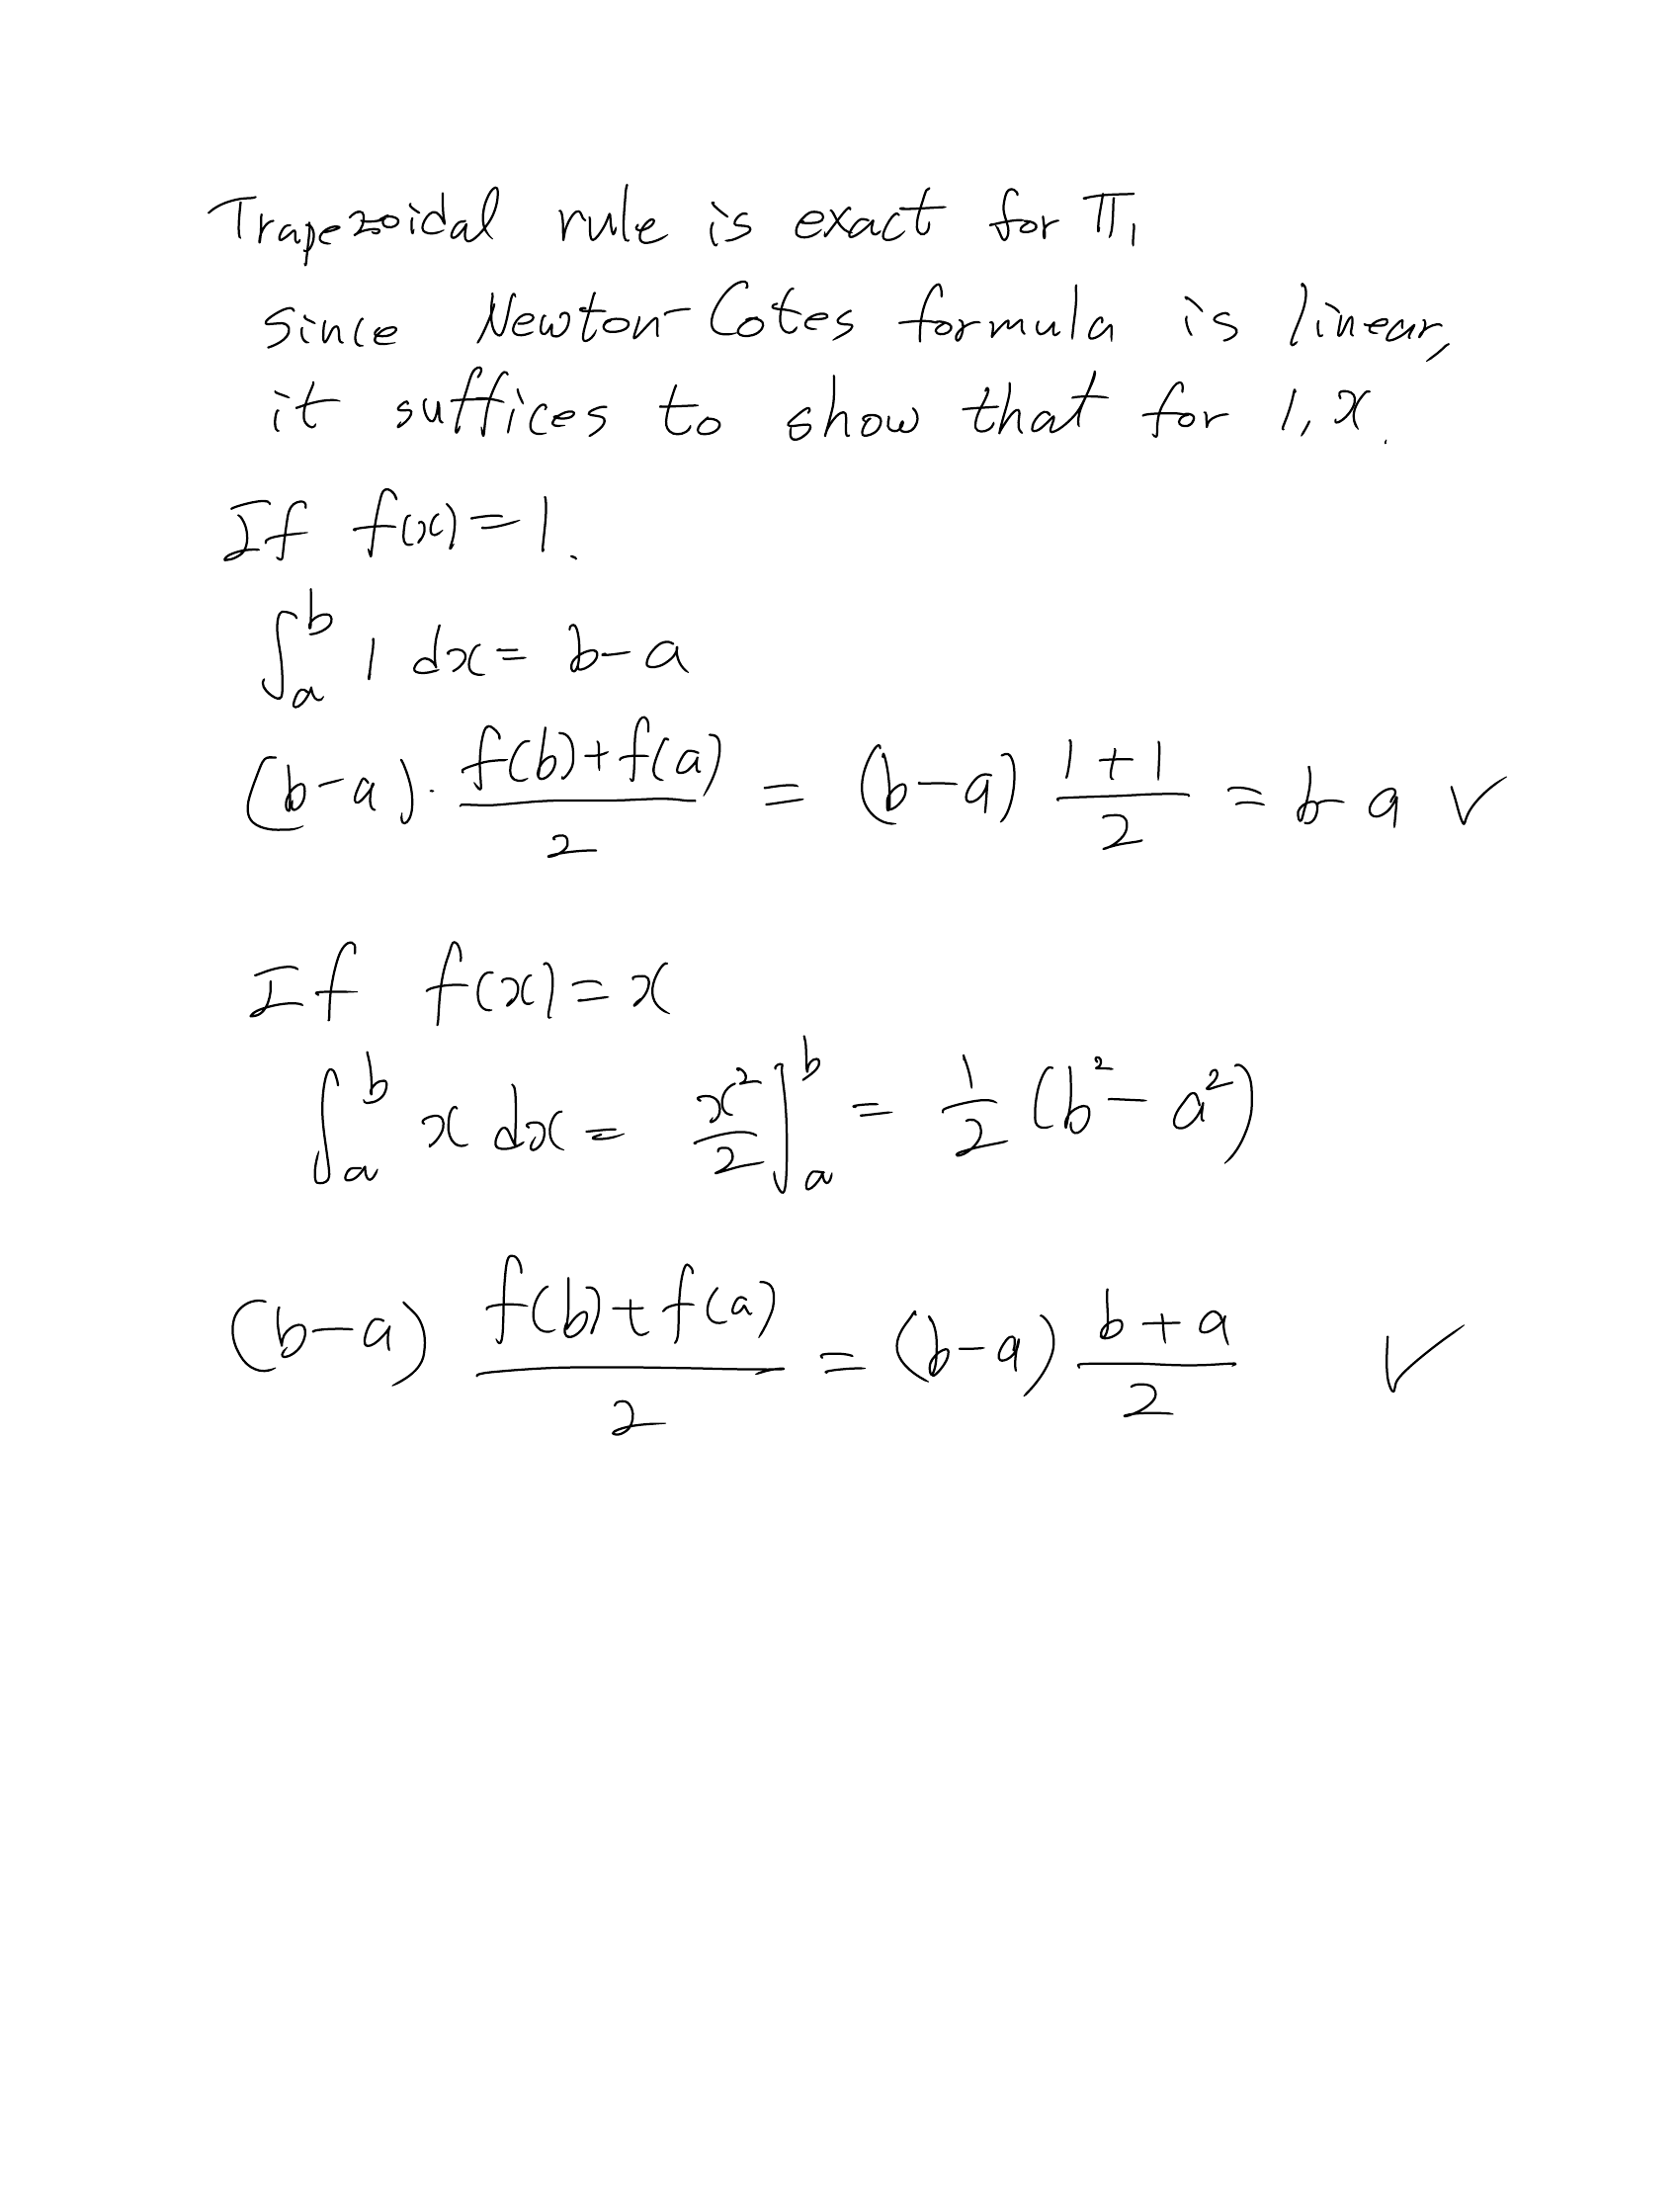 Trapezoidal rule is exact for Π₁
since Newton-Cotes formula is linear,
it suffices to show that for 1, x.
If f(x)=1.
∫ₐᵇ 1 dx = b-a
(b-a)· (f(b)+f(a))/2 = (b-a) (1+1)/2 = b-a ✓
If f(x)=x
∫ₐᵇ x dx = x²/2]ₐᵇ = 1/2 (b²-a²)
(b-a) (f(b)+f(a))/2 = (b-a) (b+a)/2 ✓